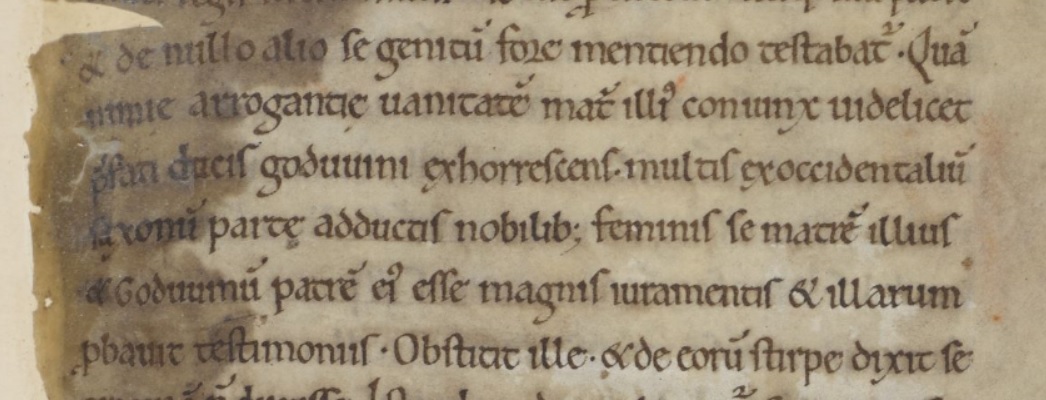 & de nullo alio se genitū fore mentiendo testabat᷑. Quā
nimie arrogantię uanitatē mat᷑ illiꝰ coniunx uidelicet
p̄fati ducis goduuini exhorrescens. multis ex occidentaliū
saxonū parte adductis nobilib; feminis se matrē illius
& Goduuinū patrē eiꝰ esse magnis iuramentis & illarum
ꝓbauit testimoniis. Obstitit ille. & de eorū stirpe dixit se